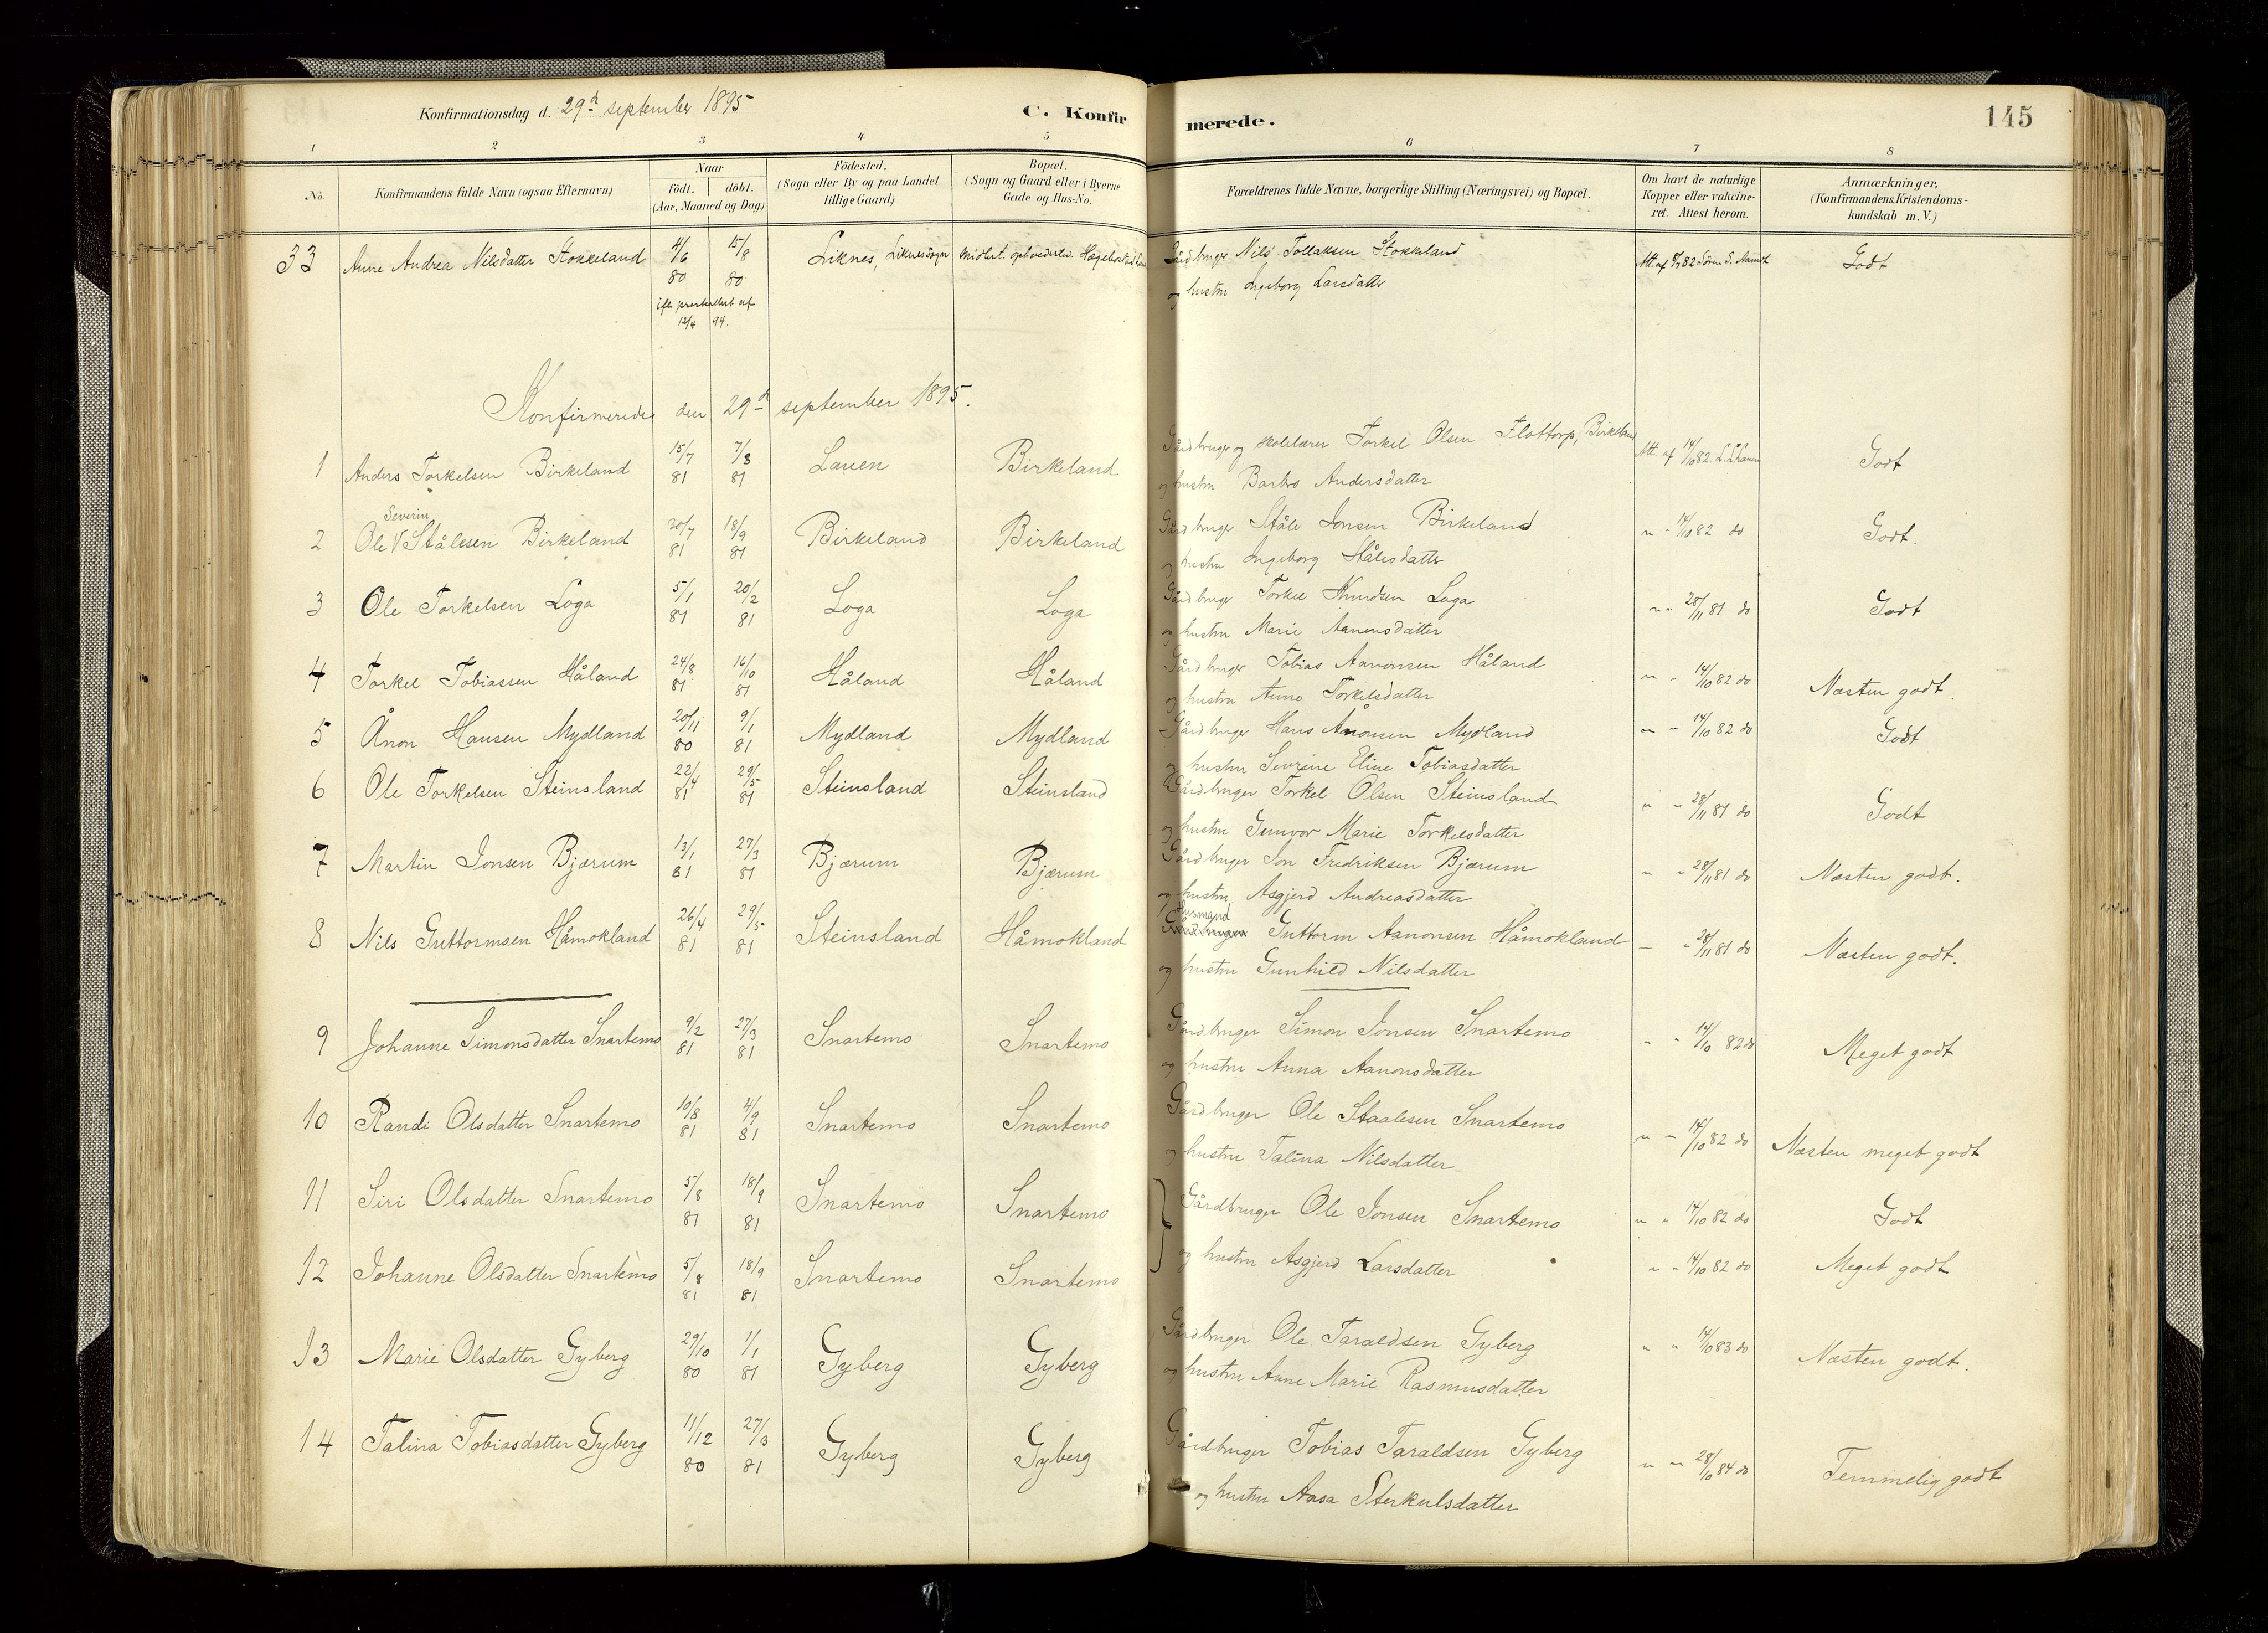 Konfirmationsdag d. 29d september 1895
C. Konfirmerede.
145
1 2 3 4 5 6 7 8
No.
Konfirmandens fulde Navn (ogsaa Efternavn)
Naar
födt. döbt.
(Aar, Maaned og Dag)
Födested.
(Sogn eller By og paa Landet
tillige Gaard)
Bopæl.
(Sogn og Gaard eller i Byerne
Gade og Hus-No.
Forældrenes fulde Navne, borgerlige Stilling (Næringsvei) og Bopæl.
Om havt de naturlige
Kopper eller vakcine-
ret. Attest herom.
Anmærkninger,
(Konfirmandens Kristendoms-
kundskab m. V.)
33 Anne Andrea Nilsdatter Stokkeland 4/6 80 15/8 80 Liknes, Liknes sogn midlert. opholdssted
Gårdbruger Nils Tollaksen Stokkeland
og hustru Ingeborg Larsdatter
Att. af 82 Sören S. Godt
ifl. prestattest af
12/4 94.
Konfirmerede den 29d september 1895.
1 Anders Torkelsen Birkeland 15/7 81 7/8 81 Lauen Birkeland
Gårdbruger og skolelærer Torkel Olsen Flottorp, Birkeland
og hustru Barbro Andersdatter
Att. af 14/10 82. Godt
2 Ole V Severin Stålesen Birkeland 30/7 81 18/9 81 Birkeland Birkeland
Gårdbruger Ståle Jonsen Birkeland
og hustru Ingeborg Stålesdatter
" " 14/10 82 do Godt.
3 Ole Torkelsen Loga 5/1 81 20/2 81 Loga Loga
Gårdbruger Torkel Knudsen Loga
og hustru Marie Aanensdatter
" " 28/11 81 do Godt
4 Torkel Tobiassen Håland 24/8 81 16/10 81 Håland Håland
Gårdbruger Tobias Aanonsen Håland
og hustru Anne Torkelsdatter
" " 14/10 82 do Næsten godt.
5 Ånon Hansen Mydland 20/11 80 9/1 81 Mydland Mydland
Gårdbruger Hans Aanonsen Mydland
og hustru Sevrine Eline Tobiasdatter
" " 14/10 82 do Godt
6 Ole Torkelsen Steinsland 22/4 81 29/5 81 Steinsland Steinsland
Gårdbruger Torkel Olsen Steinsland
og hustru Gunvor Marie Torkelsdatter
" " 28/11 81 do Godt
7 Martin Jonsen Bjærum 13/1 81 27/3 81 Bjærum Bjærum
Gårdbruger Jon Fredriksen Bjærum
og hustru Asgjerd Andreasdatter
" " 28/11 81 do Næsten godt.
8 Nils Guttormsen Håmokland 26/4 81 29/5 81 Steinsland Håmokland
Husmand
Guttorm Aanonsen Håmokland
og hustru Gunhild Nilsdatter
" " 28/11 81 do Næsten godt.
9 Johanne Simonsdatter Snartemo 9/2 81 27/3 81 Snartemo Snartemo
Gårdbruger Simon Jonsen Snartemo
og hustru Anna Aanonsdatter
" " 14/10 82 do Meget godt
10 Randi Olsdatter Snartemo 10/8 81 4/9 81 Snartemo Snartemo
Gårdbruger Ole Staalesen Snartemo
og hustru Talina Nilsdatter
" " 14/10 82 do Næsten meget godt
11 Siri Olsdatter Snartemo 5/8 81 18/9 81 Snartemo Snartemo
Gårdbruger Ole Jonsen Snartemo
" " 14/10 82 do Godt
12 Johanne Olsdatter Snartemo 5/8 81 18/9 81 Snartemo Snartemo
og hustru Asgjerd Larsdatter
" " 14/10 82 do Meget godt
13 Marie Olsdatter Gyberg 29/10 80 1/1 81 Gyberg Gyberg
Gårdbruger Ole Taraldsen Gyberg
og hustru Anne Marie Rasmusdatter
" " 14/10 83 do Næsten godt.
14 Talina Tobiasdatter Gyberg 11/12 80 27/3 81 Gyberg Gyberg
Gårdbruger Tobias Taraldsen Gyberg
og hustru Aasa Sterkulsdatter
" " 28/10 84 do Temmelig godt